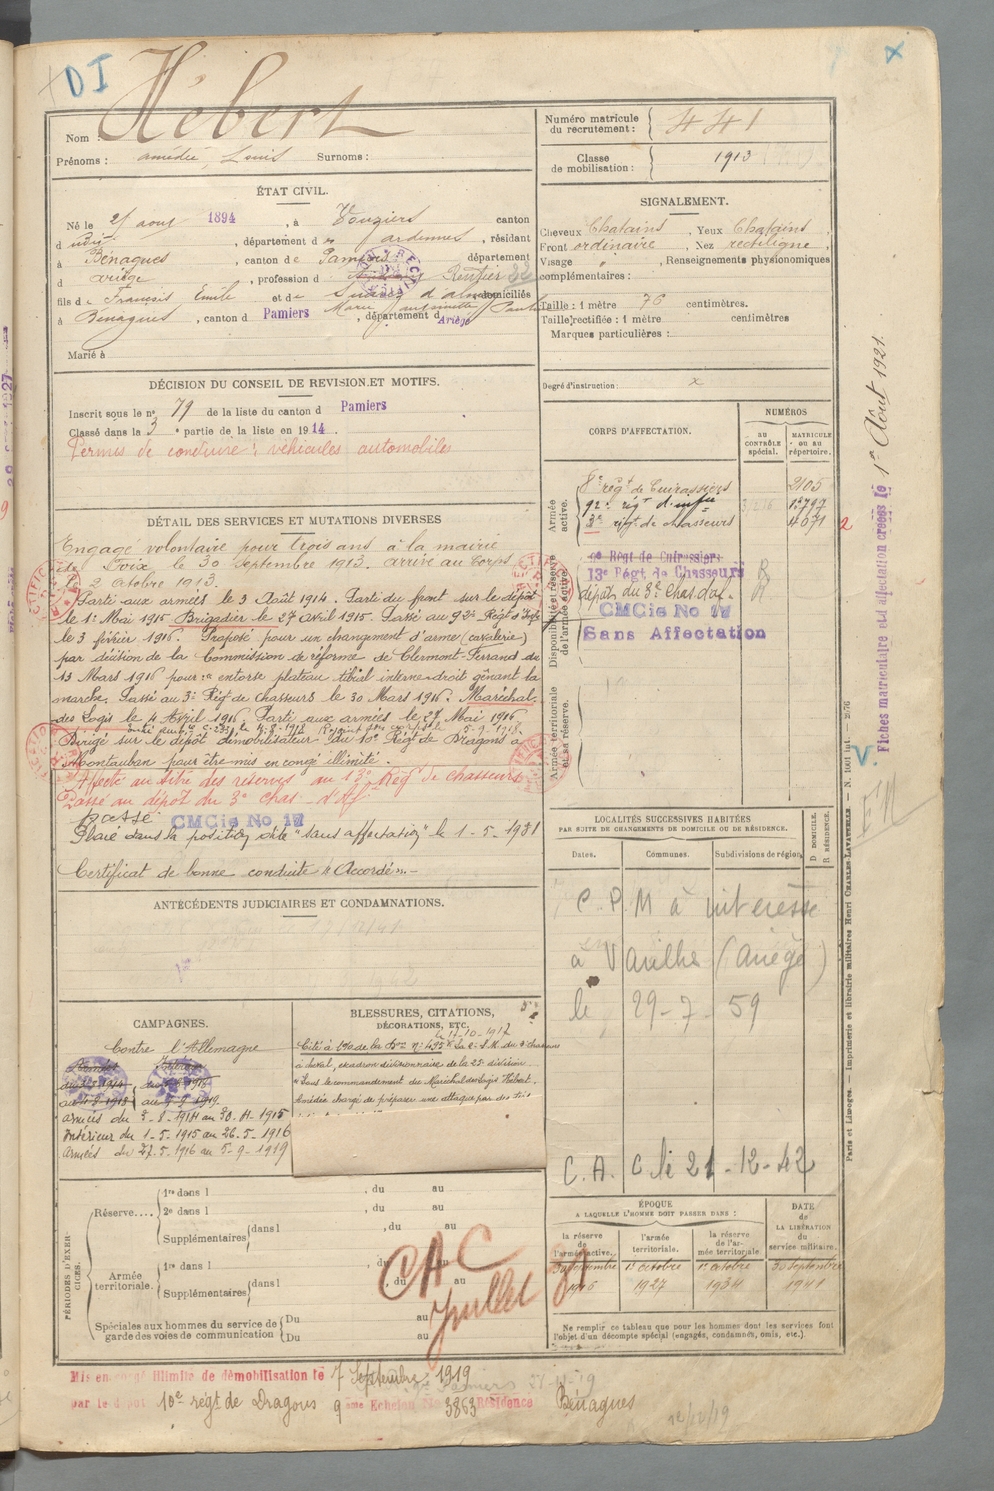 DI
Nom : Hébert
Prénoms : Amédée, Louis Surnoms :
Numéro matricule du recrutement : 441
Classe de mobilisation : 1913
ÉTAT CIVIL.
Né le 21 aout 1894, à Vouziers canton
d udit, département d es ardennes, résidant
à Bénagues, canton de Pamiers département
d ariège, profession d Rentier 32
fils de François Emile et de Suarez d'alm domiciliés
Marie antoinette Paul
à Bénagues, canton d Pamiers, département d Ariège
Marié à
SIGNALEMENT.
Cheveux Chatains, Yeux Chatains,
Front ordinaire, Nez rectiligne,
Visage " , Renseignements physionomiques
complémentaires :
Taille : 1 mètre 76 centimètres.
Taille rectifiée : 1 mètre centimètres
Marques particulières :
Degré d'instruction : x
DÉCISION DU CONSEIL DE REVISION ET MOTIFS.
Inscrit sous le nº 79 de la liste du canton d Pamiers
Classé dans la 3e partie de la liste en 1914.
Permis de conduire : véhicules automobiles
DÉTAIL DES SERVICES ET MUTATIONS DIVERSES
Engagé volontaire pour trois ans à la mairie
de Foix le 30 Septembre 1913. arrivé au Corps
le 2 Octobre 1913.
Parti aux armées le 3 Août 1914. Parti du front sur le dépôt
le 1er Mai 1915 Brigadier le 27 avril 1915. Passé au 92e Régt d'Infie
le 3 février 1916. Proposé pour un changement d'arme (cavalerie)
par décision de la Commission de réforme de Clermont-Ferrand du
13 Mars 1916 pour : entorse plateau tibial interne droit gênant la
marche. Passé au 3e Régt de chasseurs le 30 Mars 1916. Maréchal
des Logis le 4 Avril 1916. Parti aux armées le 27 Mai 1916
Dirigé sur le dépôt démobilisateur du 10e Régt de Dragons à
Montauban pour être mis en congé illimité.
Affecté au titre des réserves au 13e Régt de chasseurs
Passé au dépôt du 3e chas. d'Af
passé CMCie No 17
Placé dans la position dite "sans affectation" le 1-5-1931
Certificat de bonne conduite "Accordé".-
CORPS D'AFFECTATION.
NUMÉROS
au CONTRÔLE spécial.
MATRICULE ou au répertoire.
Armée active.
8e régt de Cuirassiers 2105
92e régt d'infie 13797
3e régt de chasseurs 4071
Disponibilité et réserve de l'armée active.
Régt de Cuirassiers
13e Régt de Chasseurs R
dépôt du 3e Chas. d'Af. R
CMCie No 17
Sans Affectation
Armée territoriale et sa réserve.
Fiches matriculaire et d'affectation créées le 1er Août 1921.
ANTÉCÉDENTS JUDICIAIRES ET CONDAMNATIONS.
LOCALITÉS SUCCESSIVES HABITÉES
PAR SUITE DE CHANGEMENTS DE DOMICILE OU DE RÉSIDENCE.
Dates. Communes. Subdivisions de région
D DOMICILE. R RÉSIDENCE.
C.P.M à intéressé
à Varilhe (Ariège)
le 29-7-59
C.A. C le 21-12-42
CAMPAGNES.
Contre l'Allemagne
armées du 3-8-1914 au 30-4-1915
intérieur du 1-5-1915 au 26-5-1916
armées du 27-5-1916 au 5-9-1919
BLESSURES, CITATIONS,
DÉCORATIONS, ETC.
le 17-10-1917
à cheval, escadron divisionnaire de la 25e division
"Sous le commandement du Maréchal des Logis Hébert.
Amédée chargé de préparer une attaque par des tirs
PÉRIODES D'EXERCICES.
Réserve....
1re dans l , du au
2e dans l , du au
Supplémentaires dans l , du au
Armée territoriale.
1re dans l , du au
Supplémentaires dans l , du au
Spéciales aux hommes du service de garde des voies de communication
Du au
Du au
CAC
juillet
ÉPOQUE
A LAQUELLE L'HOMME DOIT PASSER DANS :
la réserve de l'armée active. l'armée territoriale. la réserve de l'armée territoriale
DATE de LA LIBÉRATION du service militaire.
30 septembre 1916 1er octobre 1927 1er octobre 1934 30 Septembre 1941
Ne remplir ce tableau que pour les hommes dont les services font
l'objet d'un décompte spécial (engagés, condamnés, omis, etc.).
Mis en congé illimité de démobilisation le 7 Septembre 1919
par le dépôt 10e régt de Dragons 9ème Echelon No 3863 Résidence Bénagues
12/10/19
Paris et Limoges. — Imprimerie et librairie militaires Henri CHARLES-LAVAUZELLE. — N. 1001 int.